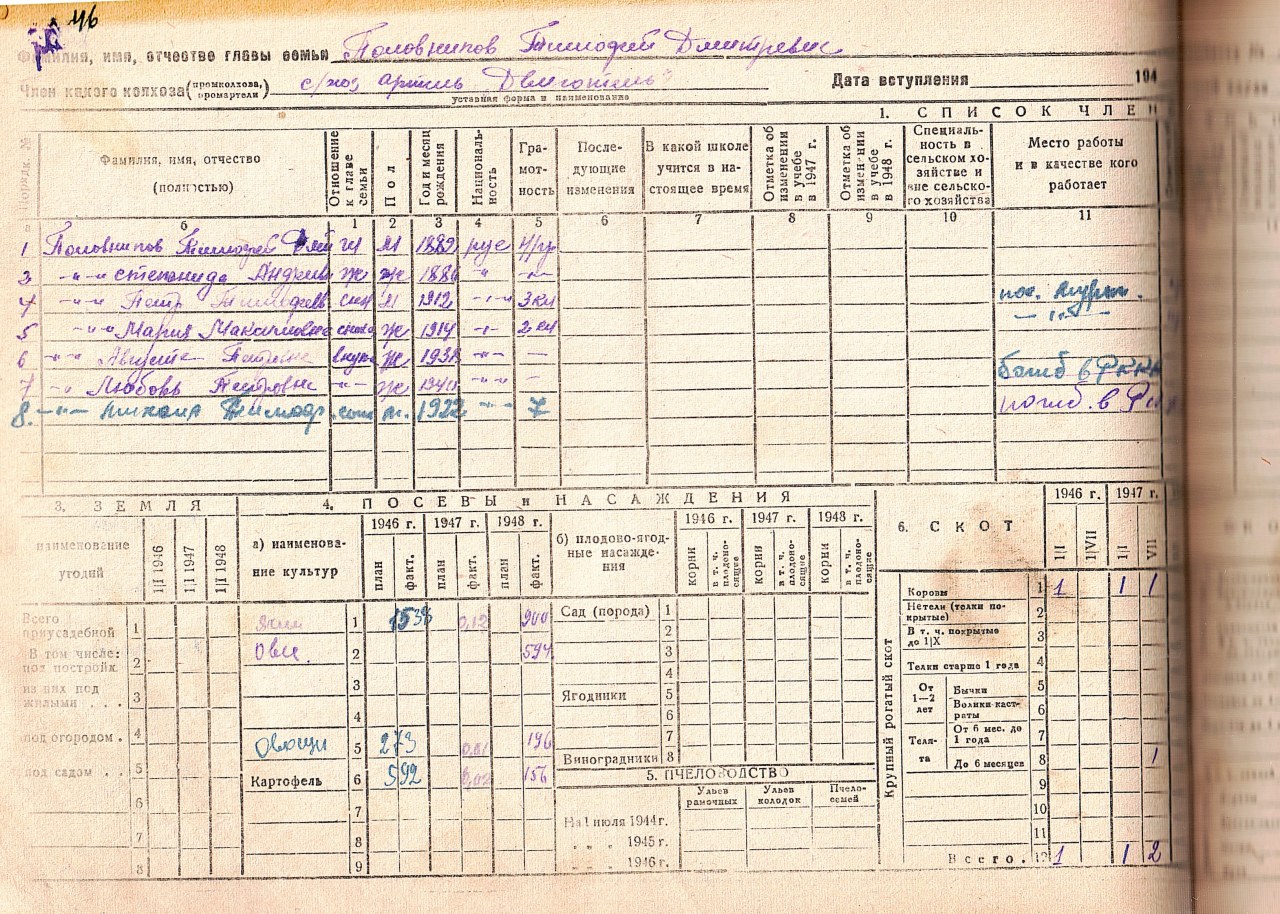 46
Фамилия, имя, отчество главы семьи Половников Тимофей Дмитревич
Член какого колхоза (промколхоза, промартели) с/хоз артель Двигатель"
уставная форма и наименование
Дата вступления 194
1. СПИСОК ЧЛЕН
Порядк. №
Фамилия, имя, отчество (полностью)
Отношение к главе семьи
Пол
Год и месяц рождения
Националь-ность
Гра-мот-ность
После-дующие изменения
В какой школе учится в на-стоящее время
Отметка об изменении в учебе в 1947 г.
Отметка об измен-нии в учебе в 1948 г.
Специаль-ность в сельском хо-зяйстве и вне сельско-го хозяйства
Место работы и в качестве кого работает
б 1 2 3 4 5 6 7 8 9 10 11
1 Половников Тимофей М 1889 рус
3 -"- Степанида Андреев ж ж 1886 -"-
4 -"- Петр Тимофеев сын М 1912 -"- 3 кл
5 -"- Мария Максимовна сноха ж 1914 -"- 2 кл
6 -"- Августа Петровна внучка ж -"- —
7 -"- Любовь Петровна -"- ж -"- —
8. -"- Михаил Тимоф. сын м. 1922 -"- 7 погиб. в
3. ЗЕМЛЯ
наименование угодий
1|I 1946
1|I 1947
1|I 1948
Всего приусадебной 1
В том числе: под постройк. 2
из них под жилыми . . . 3
под огородом . 4
под садом . . 5
6
7
8
4. ПОСЕВЫ и НАСАЖДЕНИЯ
а) наименова-ние культур
1946 г. 1947 г. 1948 г.
план факт. план факт. план факт.
1 1538 0,12 900
Овес 2 594
3
4
Овощи 5 273 0,01 196
Картофель 6 592 0,02 156
7
8
9
б) плодово-ягод-ные насажде-ния
1946 г. 1947 г. 1948 г.
корни в т. ч. плодоно-сящие корни в т. ч. плодоно-сящие корни в т. ч. плодоно-сящие
Сад (порода) 1
2
3
4
Ягодники 5
6
7
Виноградники 8
5. ПЧЕЛОВОДСТВО
Ульев рамочных
Ульев колодок
Пчело-семей
На 1 июля 1944 г.
" " " 1945 г.
" " " 1946 г.
6. СКОТ
1946 г. 1947 г.
1|I 1|VII 1|I VII
Крупный рогатый скот
Коровы 1 1 1 1
Нетели (телки по-крытые) 2
В т. ч. покрытые до 1|X 3
Телки старше 1 года 4
От 1—2 лет
Бычки 5
Волики-каст-раты 6
Теля-та
От 6 мес. до 1 года 7
До 6 месяцев 8 1
9
10
11
Всего. 12 1 1 2